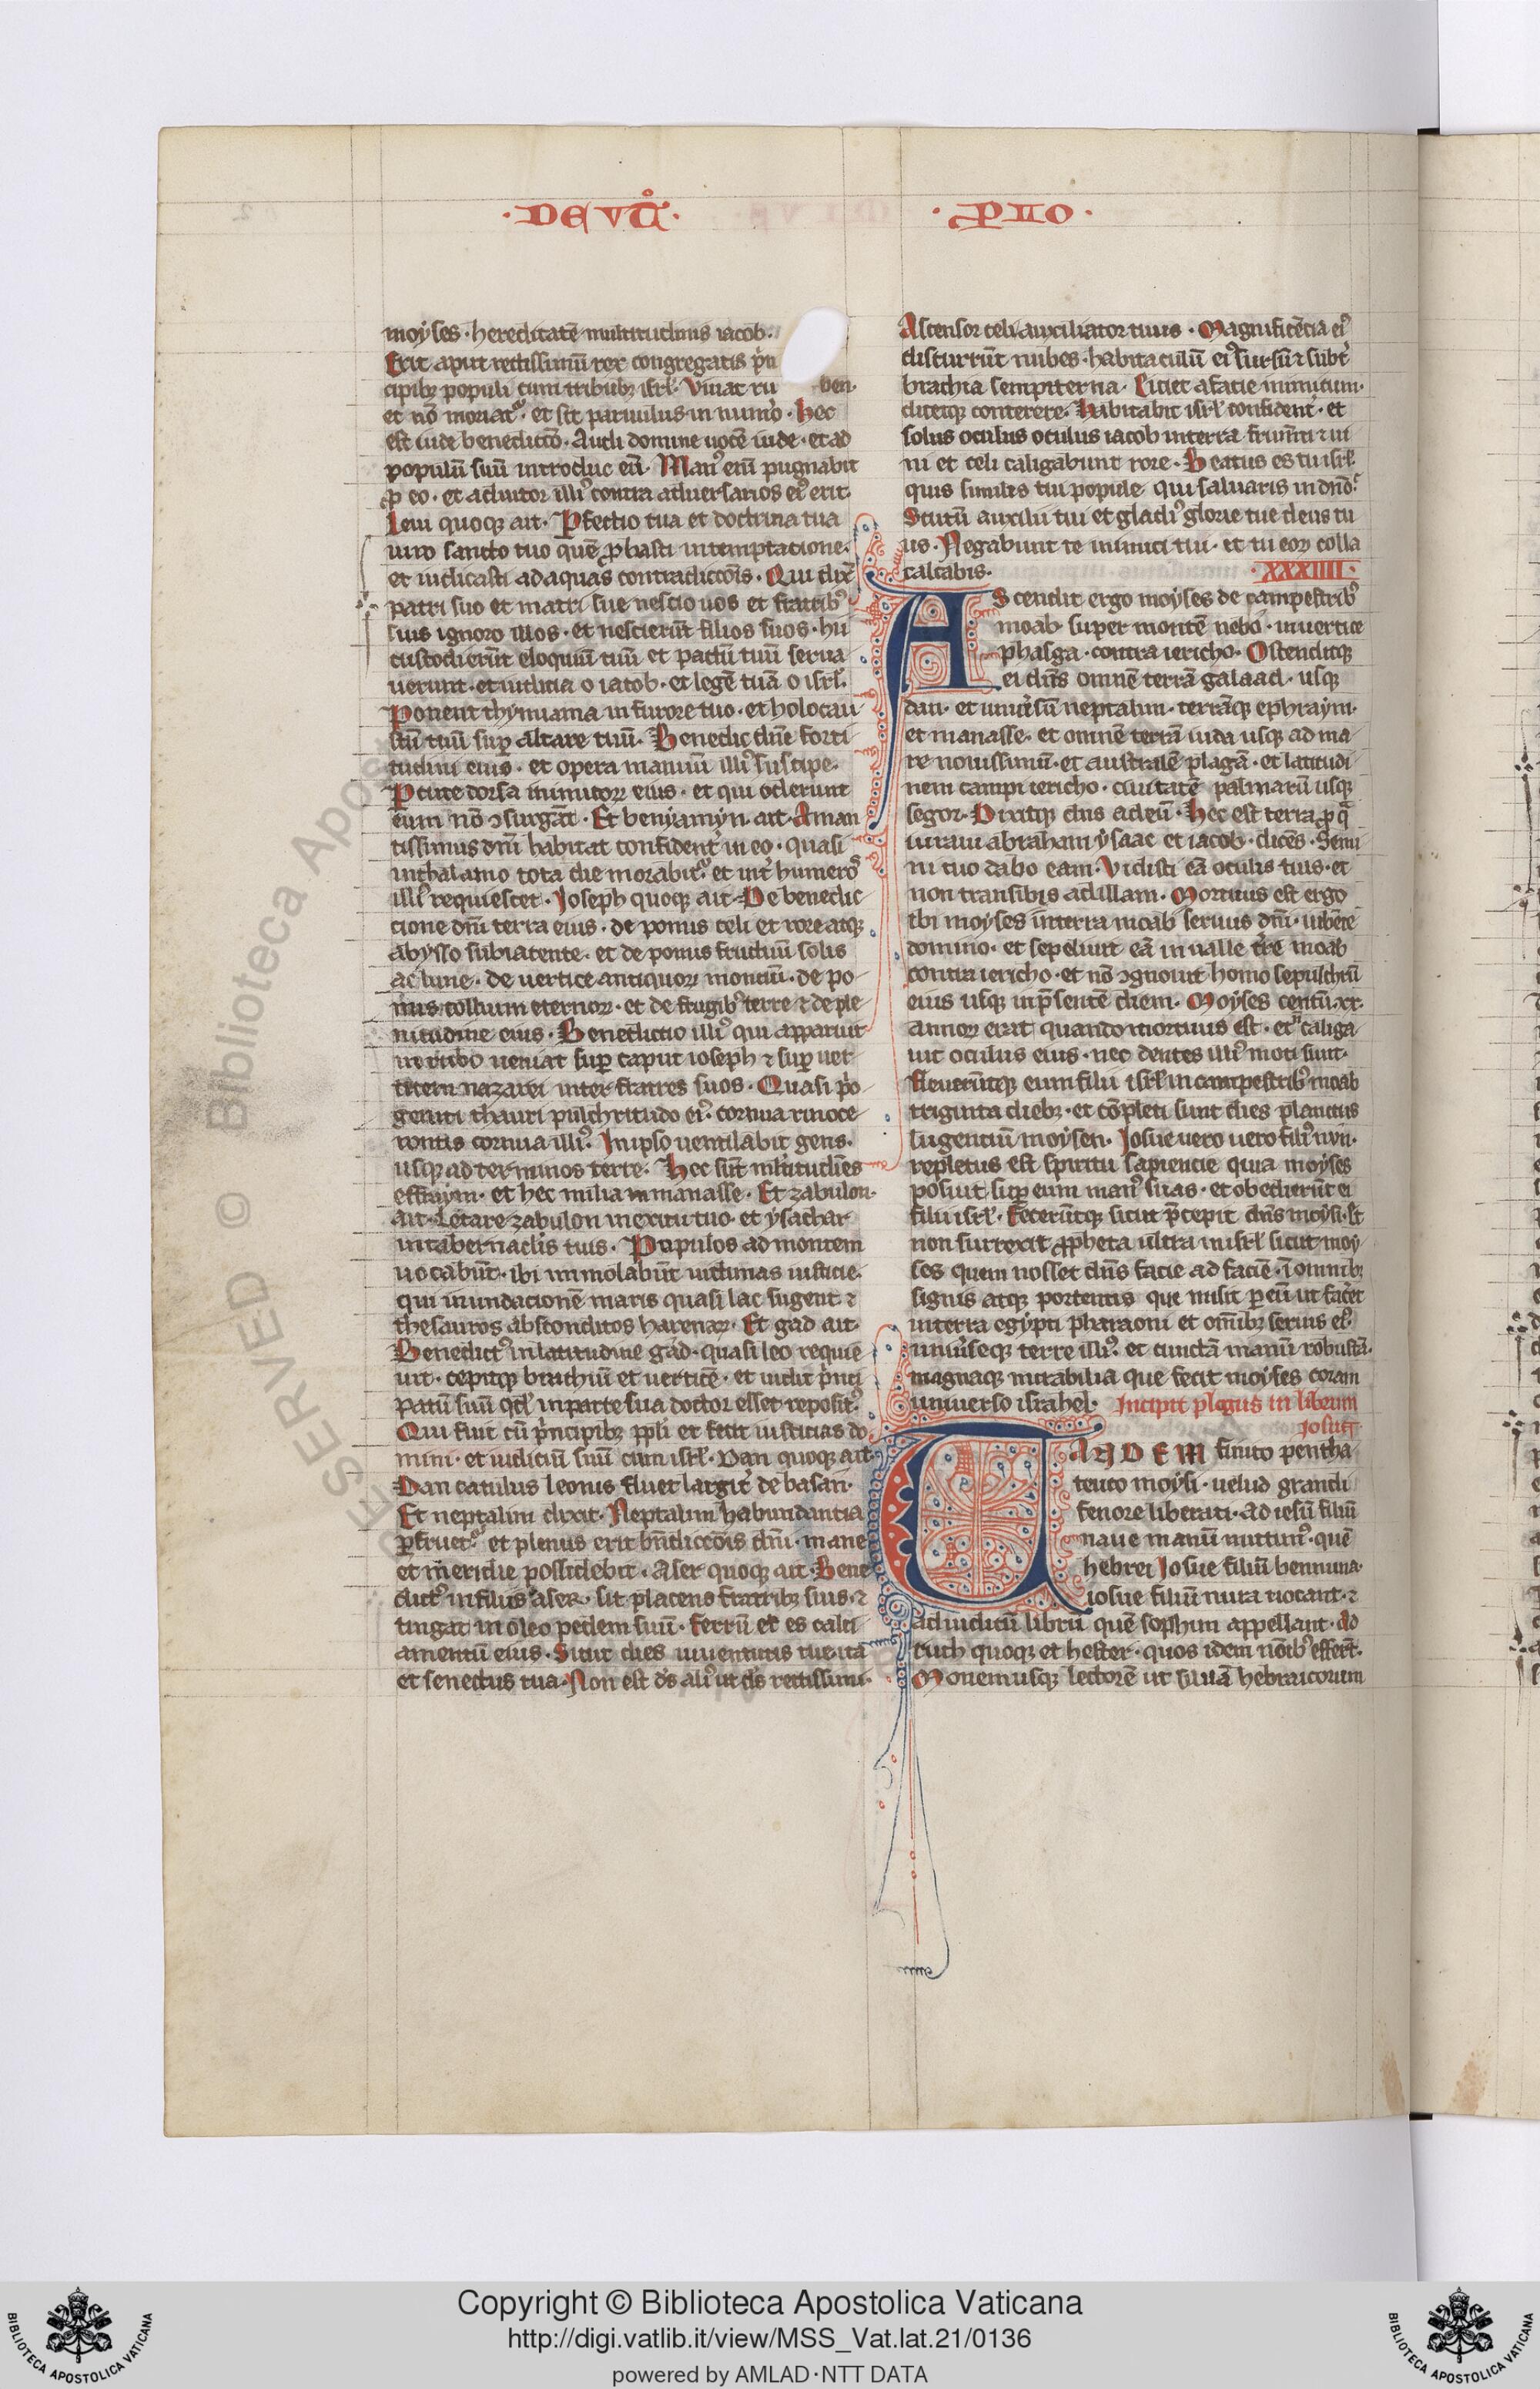 ·DEVT̊·
·PNO·
moyses · hereditatē multitudinis iacob·
Erit aput rectissimū rex congregatis p̄n
cipibꝫ populi cum tribubꝫ isrl̓· Viuat ru ben·
et nō moriat᷑· et sit paruulus in num̓o · Hec
est iude benedictō· Audi domine uocē iude · et ad
populū suū introduc eū· Man᷒ eius pugnabit
ꝓ eo · et adiutor illi᷒ contra aduersarios ei᷒ erit·
Leui quoqꝫ ait· Pfectio tua et doctrina tua
uiro sancto tuo quē ꝓbasti in temptatione·
et iudicasti ad aquas contradiccōis · Qui dix̓
patri suo et matri sue nescio uos et fratrib᷒
suis ignoro illos · et nescierūt filios suos · hii
custodierūt eloquiū tuū et pactū tuū serua
uerunt · et iudicia o iacob · et legē tuā o isrl̓·
Ponent thymiama in furore tuo · et holocau
stū tuū suꝑ altare tuū· Benedic dn̄e forti
tudini eius · et opera manuū illi᷒ suscipe·
Pcute dorsa inimicoꝝ eius · et qui oderunt
eum nō ꝯsurgāt · Et benyamyn ait· Aman
tissimus dn̄i habitat confident̓ in eo · quasi
in thalamo tota die morabit᷑ et int̓ humero᷒
illi᷒ requiescet · Ioseph quoqꝫ ait· De benedic
cione dn̄i terra eius · de pomis celi et rore atqꝫ
abysso subiacente · et de pomis fructuū solis
ac lune · de uertice antiquoꝝ montiū · de po
mis collium eternoꝝ · et de frugib᷒ terre ⁊ de ple
nitudine eius · Benedictio illi᷒ qui apparuit
in rubo ueniat suꝑ caput ioseph ⁊ suꝑ uer
ticem nazarei inter fratres suos · Quasi p̓o
geniti thauri pulchritudo ei᷒· cornua rinoce
rontis cornua illi᷒· In ipso uentilabit gens·
usqꝫ ad terminos terre· Hec sūt ml̓titudīes
effraym · et hec milia manasse · Et zabulon·
ait· Letare zabulon in exitu tuo · et ysachar
in tabernacl̓is tuis· Populos ad montem
uocabūt · ibi immolabūt uictimas iusticie·
qui inundacionē maris quasi lac sugent ⁊
thesauros absconditos harenaꝝ· Et gad ait·
Benedict᷒ in latitudine gad · quasi leo requie
uit · cepitqꝫ brachiū et uerticē · et uidit p̓nci
patū suū qd̓ in parte sua doctor esset reposit᷒·
Qui fuit cū p̓ncipibꝫ pp̄li et fecit iusticias do
mini · et iudiciū suū cum isrl̓· Dan quoqꝫ ait·
Dan catulus leonis fluet largit̓ de basan·
Et neptalim dixit· Neptalim habundantia
ꝑfruet᷑ et plenus erit bn̄diccōis dn̄i · mare
et meridie possidebit · Aser quoqꝫ ait· Bene
dict᷒ in filiis aser · sit placens fratribꝫ suis · ⁊
tingat in oleo pedem suū · Ferrū et es calci
amentū eius · Sicut dies iuuentutis tue ita
et senectus tua· Non est d̄s ali᷒ ut d̄s rectissimi·
Ascensor celi auxiliator tuus · Magnificēcia ei᷒
discurrūt nubes · habitaculū ei᷒ sursū ⁊ subt̓
brachia sempiterna· Eiciet a facie inimicum·
dicetqꝫ conterere· Habitabit isrl̓ confident̓ · et
solus oculus oculus iacob in terra frum̄ti ⁊ ui
ni et celi caligabunt rore · Beatus es tu isrl̓
quis similis tui popule qui saluaris in dn̄o·
Scutū auxilii tui et gladi᷒ glorie tue deus tu
us· Negabunt te inimici tui · et tu eoꝝ colla
calcabis· ·XXXIIII·
AScendit ergo moyses de campestrib᷒
moab super montē nebo · in uertice
phasga · contra iericho· Ostenditqꝫ
ei dn̄s omnē terrā galaad · usqꝫ
dan · et uniu̓sū neptalim · terrāqꝫ ephraym·
et manasse · et omnē terrā iuda usqꝫ ad ma
re nouissimū · et australē plagā · et latitudi
nem campi iericho · ciuitatē palmarū usqꝫ
segor· Dixitqꝫ dn̄s ad eū· Hec est terra ꝓ qᷓ
iuraui abraham ysaac et iacob · dicēs · Semi
ni tuo dabo eam· Vidisti eā oculis tuis · et
non transibis ad illam · Mortuus est ergo
ibi moyses in terra moab seruus dn̄i · iubēte
domino · et sepeliuit eū in ualle tr̄e moab
contra iericho · et nō ꝯgnouit homo sepulchrū
eius usqꝫ in p̄sentē diem· Moyses centū · xx·
annoꝝ erat quando mortuus est · et n̄ caliga
uit oculus eius · nec dentes illi᷒ moti sunt·
Fleuerūtqꝫ eum filii isrl̓ in campestrib᷒ moab
triginta diebꝫ · et cōpleti sunt dies planctus
lugentiū moysen· Iosue uero uero fili᷒ nun·
repletus est spiritu sapiencie quia moyses
posuit suꝑ eum man᷒ suas · et obedierūt ei
filii isrl̓· Fecerūtqꝫ sicut p̄cepit dn̄s moysi· Et
non surrexit ꝓpheta ultra in isrl̓ sicut moy
ses quem nosset dn̄s facie ad faciē · ī omnibꝫ
signis atqꝫ portentis que misit ꝑ eū ut facēt
in terra egypti pharaoni et om̄ibꝫ seruis ei᷒·
uniu̓seqꝫ terre illi᷒· et cunctā manū robustā·
magnaqꝫ mirabilia que fecit moyses coram
uniuerso israhel· Incipit p̓logus in librum
Iosue
TANDEM finito pentha
teuco moysi · uelud grandi
fenore liberati · ad iesū filiū
naue manū mittim᷒· quē
hebrei Iosue filiū bennuna·
iosue filiū nuta uocant · ⁊
ad iudicū librū quē sophtim appellant · Ad
ruth quoqꝫ et hester · quos idem nōib᷒ effert̄·
Monemusqꝫ lectorē ut siluā hebraicorum
RESERVED © Biblioteca Apos
Copyright © Biblioteca Apostolica Vaticana
http://digi.vatlib.it/view/MSS_Vat.lat.21/0136
powered by AMLAD·NTT DATA
BIBLIOTECA APOSTOLICA VATICANA
BIBLIOTECA APOSTOLICA VATICANA